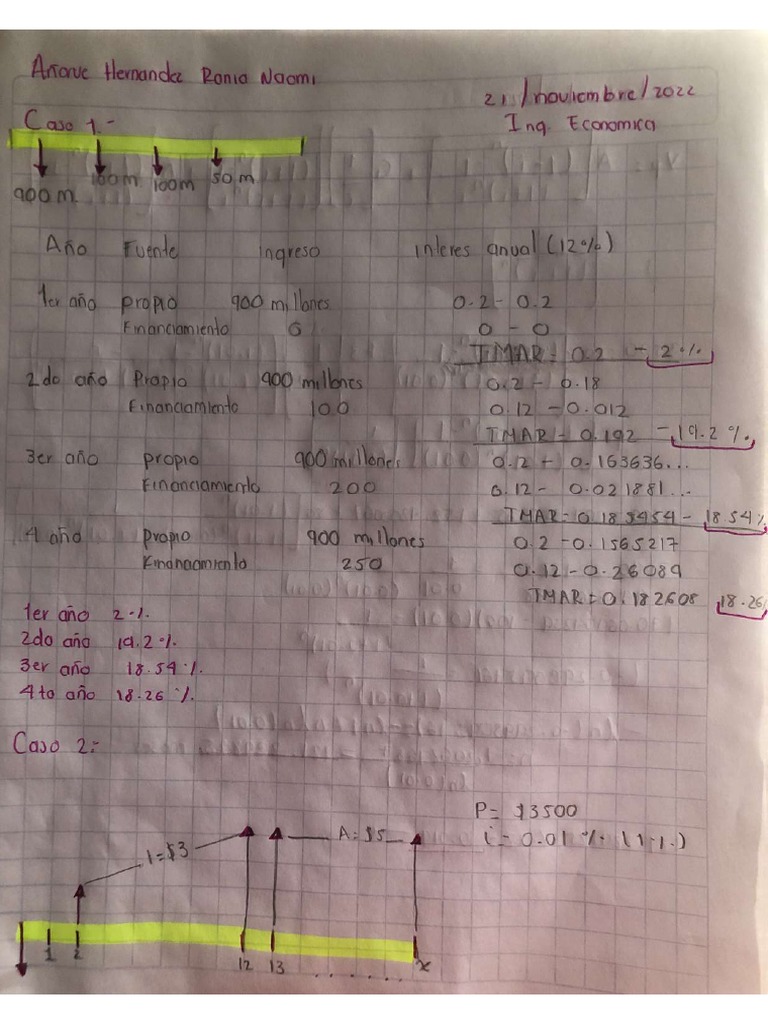 Añorve Hernandez Rania Naomi
21/noviembre/2022
Caso 1.-
Ing. Economica
900 m. 100m 100m 50 m
Año Fuente Ingreso interes anual (12%)
1er año propio 900 millones 0.2 - 0.2
Financiamiento 0 0 - 0
TMAR = 0.2 - 2%
2do año Propio 900 millones 0.2 - 0.18
Financiamiento 100 0.12 - 0.012
TMAR - 0.192 - 19.2%
3er año propio 900 millones 0.2 - 0.163636...
Financiamiento 200 0.12 - 0.021881...
TMAR - 0.185454 - 18.54%
4 año propio 900 millones 0.2 - 0.1565217
Financiamiento 250 0.12 - 0.26089
TMAR = 0.182608 18.26
1er año 2%
2do año 19.2%
3er año 18.54%
4to año 18.26%
Caso 2:-
P= $3500
i= 0.01% (1%)
1=$3
A=$5
1 2 12 13 ...... x